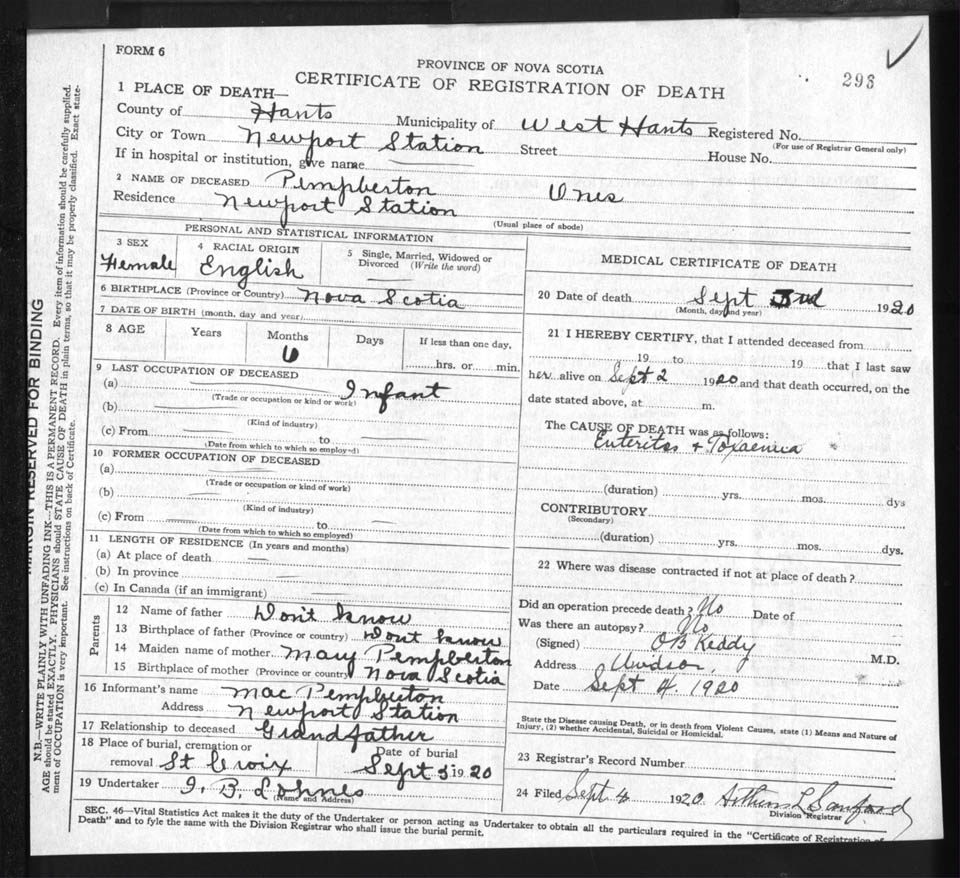 FORM 6
PROVINCE OF NOVA SCOTIA
CERTIFICATE OF REGISTRATION OF DEATH
296
1 PLACE OF DEATH—
County of Hants Municipality of West Hants Registered No.
(For use of Registrar General only)
City or Town Newport Station Street House No.
If in hospital or institution, give name
2 NAME OF DECEASED Pempberton
Residence Newport Station
(Usual place of abode)
PERSONAL AND STATISTICAL INFORMATION
3 SEX Female
4 RACIAL ORIGIN English
5 Single, Married, Widowed or Divorced (Write the word)
6 BIRTHPLACE (Province or Country) Nova Scotia
7 DATE OF BIRTH (month, day and year)
8 AGE Years Months Days If less than one day,
6 hrs. or min.
9 LAST OCCUPATION OF DECEASED
(a) Infant
(Trade or occupation or kind or work)
(b)
(Kind of industry)
(c) From to
(Date from which to which so employed)
10 FORMER OCCUPATION OF DECEASED
(a)
(Trade or occupation or kind of work)
(b)
(Kind of industry)
(c) From to
(Date from which to which so employed)
11 LENGTH OF RESIDENCE (In years and months)
(a) At place of death
(b) In province
(c) In Canada (if an immigrant)
Parents
12 Name of father Don't know
13 Birthplace of father (Province or country) Don't know
14 Maiden name of mother Mary Pempberton
15 Birthplace of mother (Province or country) Nova Scotia
16 Informant's name Mac Pempberton
Address Newport Station
17 Relationship to deceased Grandfather
18 Place of burial, cremation or removal St Croix
Date of burial Sept 5 1920
19 Undertaker I. B. Lohnes
(Name and Address)
MEDICAL CERTIFICATE OF DEATH
20 Date of death Sept 3rd 1920
(Month, day and year)
21 I HEREBY CERTIFY, that I attended deceased from
19 to 19 that I last saw
her alive on Sept 2 1920 and that death occurred, on the
date stated above, at m.
The CAUSE OF DEATH was as follows:
Enteritis + Toxaemia
(duration) yrs. mos. dys
CONTRIBUTORY
(Secondary)
(duration) yrs. mos. dys.
22 Where was disease contracted if not at place of death?
Did an operation precede death? No Date of
Was there an autopsy? No
(Signed) O B Keddy M.D.
Address Windsor
Date Sept 4. 1920
State the Disease causing Death, or in death from Violent Causes, state (1) Means and Nature of
Injury, (2) whether Accidental, Suicidal or Homicidal.
23 Registrar's Record Number
24 Filed Sept 4 1920 Arthur L Sanford
Division Registrar
SEC. 46—Vital Statistics Act makes it the duty of the Undertaker or person acting as Undertaker to obtain all the particulars required in the "Certificate of Registration of
Death" and to fyle the same with the Division Registrar who shall issue the burial permit.
MARGIN RESERVED FOR BINDING
N.B.—WRITE PLAINLY WITH UNFADING INK—THIS IS A PERMANENT RECORD. Every item of information should be carefully supplied.
AGE should be stated EXACTLY. PHYSICIANS should STATE CAUSE OF DEATH in plain terms, so that it may be properly classified. Exact state-
ment of OCCUPATION is very important. See instructions on back of Certificate.